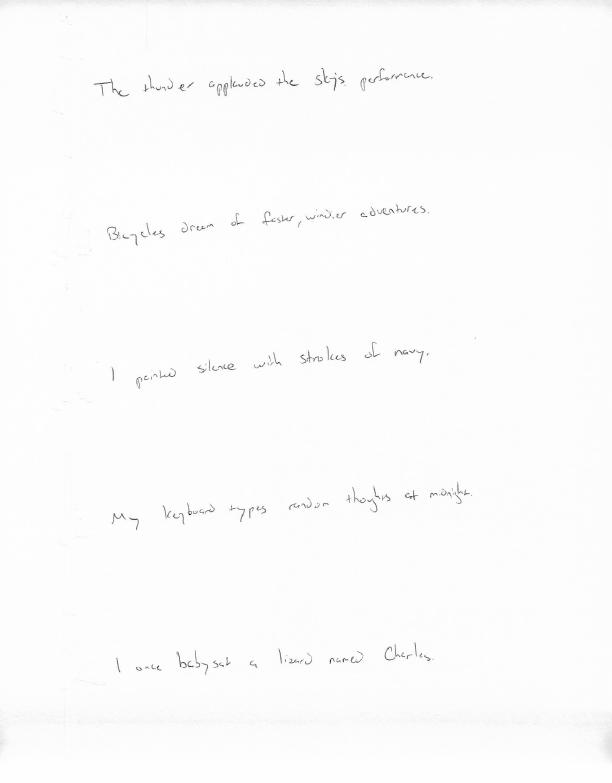 The thunder applauded the sky's performance.
Bicycles dream of faster, windier adventures.
I painted silence with strokes of navy.
My keyboard types random thoughts at midnight.
I once babysat a lizard named Charles.